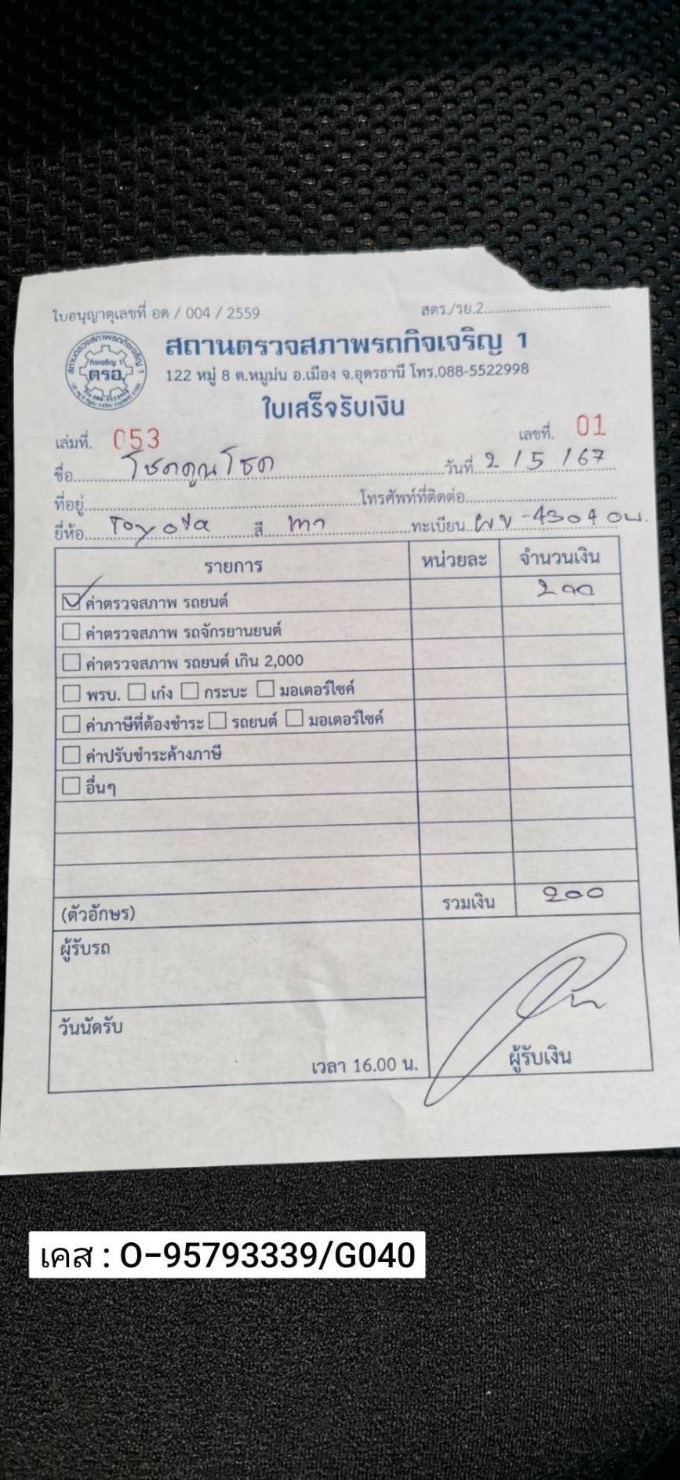 ใบอนุญาตเลขที่ อด / 004 / 2559 สตร./รย.2
สถานตรวจสภาพรถกิจเจริญ 1
ตรอ.
122 หมู่ 8 ต.หมูม่น อ.เมือง จ.อุดรธานี โทร.088-5522998
ใบเสร็จรับเงิน
เล่มที่. 053 เลขที่. 01
ชื่อ โชคคูณโชค วันที่ 2 / 5 / 67
ที่อยู่ โทรศัพท์ที่ติดต่อ
ยี่ห้อ Toyota สี เทา ทะเบียน
รายการ หน่วยละ จำนวนเงิน
ค่าตรวจสภาพ รถยนต์ 200
ค่าตรวจสภาพ รถจักรยานยนต์
ค่าตรวจสภาพ รถยนต์ เกิน 2,000
พรบ. เก๋ง กระบะ มอเตอร์ไซค์
ค่าภาษีที่ต้องชำระ รถยนต์ มอเตอร์ไซค์
ค่าปรับชำระค้างภาษี
อื่นๆ
(ตัวอักษร) รวมเงิน 200
ผู้รับรถ
วันนัดรับ
เวลา 16.00 น. ผู้รับเงิน
เคส : O-95793339/G040